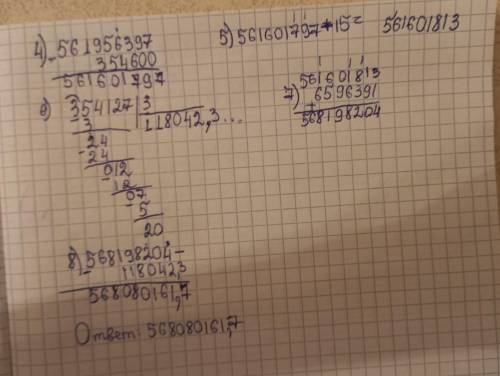 4) 561956397
- 354600
561601797
5) 561601797+15= 561601813
6) 354127 | 3
- 3 | 118042,3...
24
- 24
012
- 12
07
- 5
20
7) 561601813
+ 6596391
568198204
8) 568198204 -
- 118042,3
568080161,7
Ответ: 568080161,7